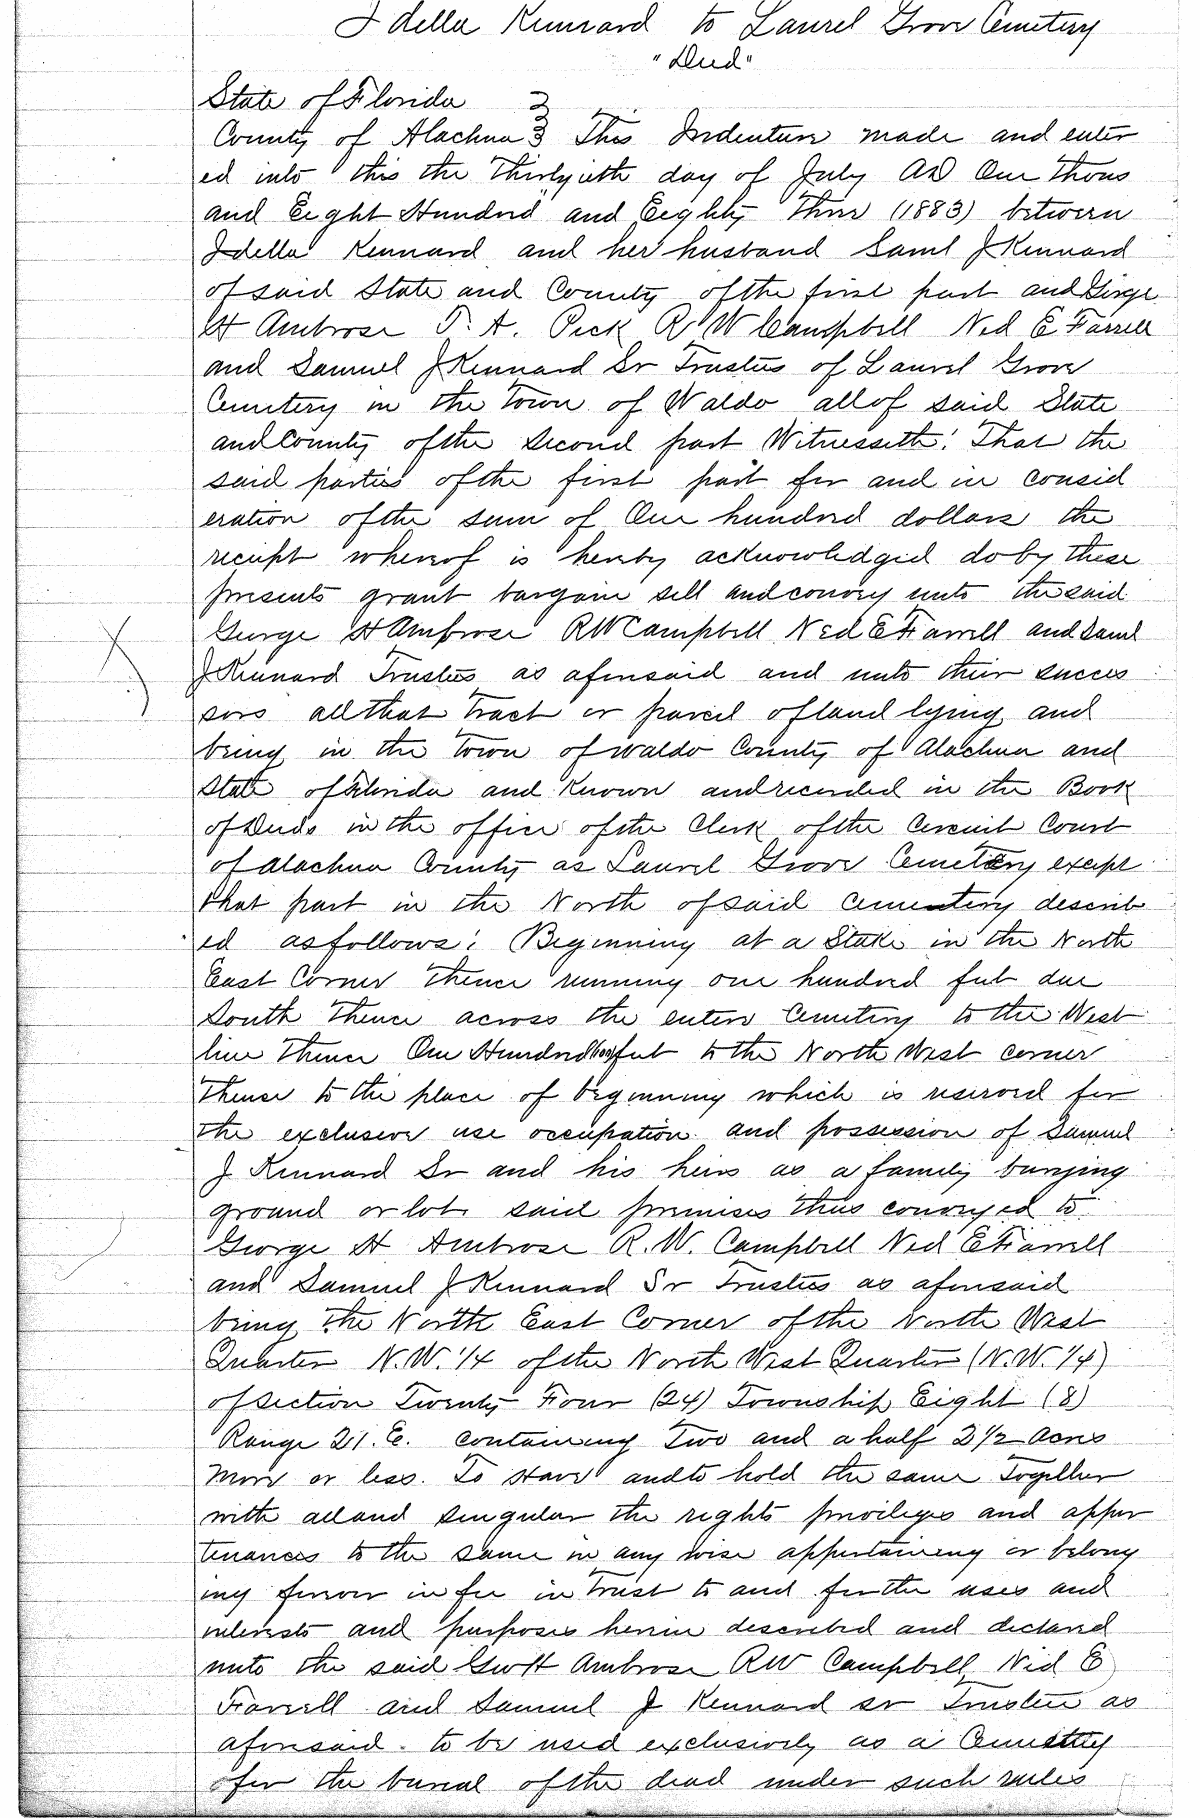 Idella Kennard to Laurel Grove Cemetery
"Deed"
State of Florida }
County of Alachua } This Indenture made and enter
ed into this the Thirtyieth day of July AD One Thous
and Eight Hundred and Eighty Three (1883) between
Idella Kennard and her husband Saml J Kennard
of said State and County of the first part and George
H Ambrose T. A. Peck R W Campbell Ned E Farrell
and Samuel J Kennard Sr Trustees of Laurel Grove
Cemetery in the Town of Waldo all of said State
and County of the Second part Witnesseth: That the
said parties of the first part for and in consid
eration of the sum of One hundred dollars the
receipt whereof is hereby acknowledged do by these
presents grant bargain sell and convey unto the said
George H Ambrose R W Campbell Ned E Farrell and Saml
J Kennard Trustees as aforesaid and unto their succes
sors all that Tract or parcel of land lying and
being in the Town of Waldo County of Alachua and
State of Florida and Known and recorded in the Book
of Deeds in the office of the Clerk of the Circuit Court
of Alachua County as Laurel Grove Cemetery except
that part in the North of said Cementery describ
ed as follows: Beginning at a Stake in the North
East Corner Thence running one hundred feet due
South Thence across the entire Cemetery to the West
line Thence One Hundred feet to the North West corner
Thense to the place of beginning which is reserved for
the exclusive use occupation and possession of Samuel
J Kennard Sr and his heirs as a family burying
ground or lot said premises thus conveyed to
George H Ambrose R. W. Campbell Ned E Farrell
and Samuel J Kennard Sr Trustees as aforesaid
being the North East Corner of the North West
Quarter N.W. 1/4 of the North West Quarter (N.W. 1/4)
of Section Twenty Four (24) Township Eight (8)
Range 21. E. containing Two and a half 2 1/2 Acres
More or less. To Have and to hold the same Together
with all and singular the rights privileges and appur
tenances to the same in any wise appertaining or belong
ing forever in fee in Trust to and for the uses and
interests and purposes herein described and declared
unto the said Geo H Ambrose R W Campbell Ned E
Farrell and Samuel J Kennard Sr Trustees as
aforesaid. to be used exclusively as a Cemetery
for the burial of the dead under such rules